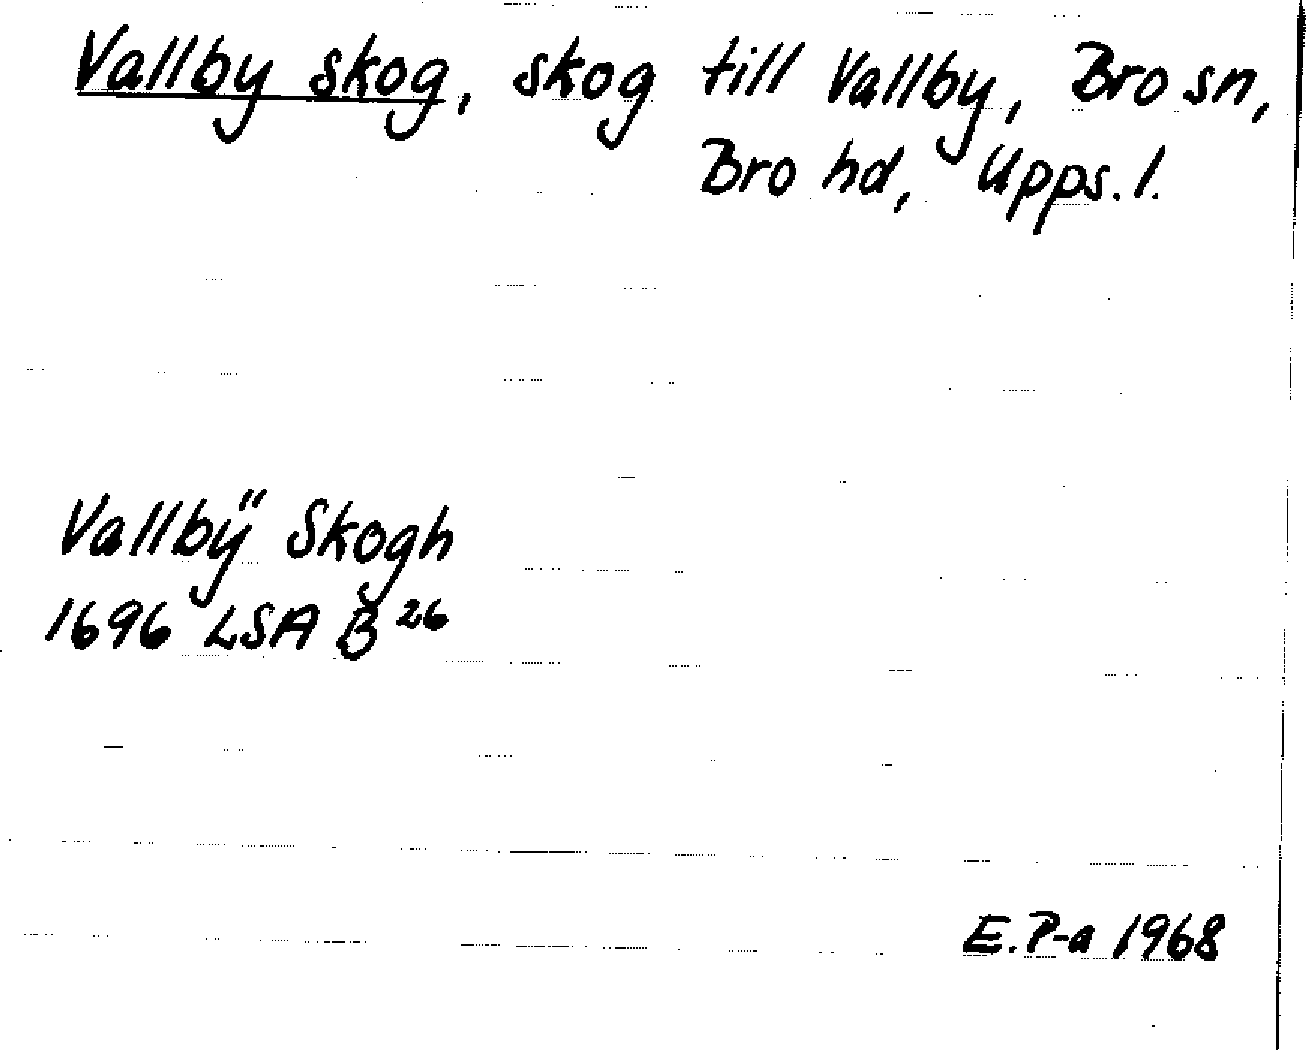 Vallby skog, skog till Vallby, Bro sn,
Bro hd, Upps. l.
Vallbÿ Skogh
1696 LSA B 26
E. P-a 1968